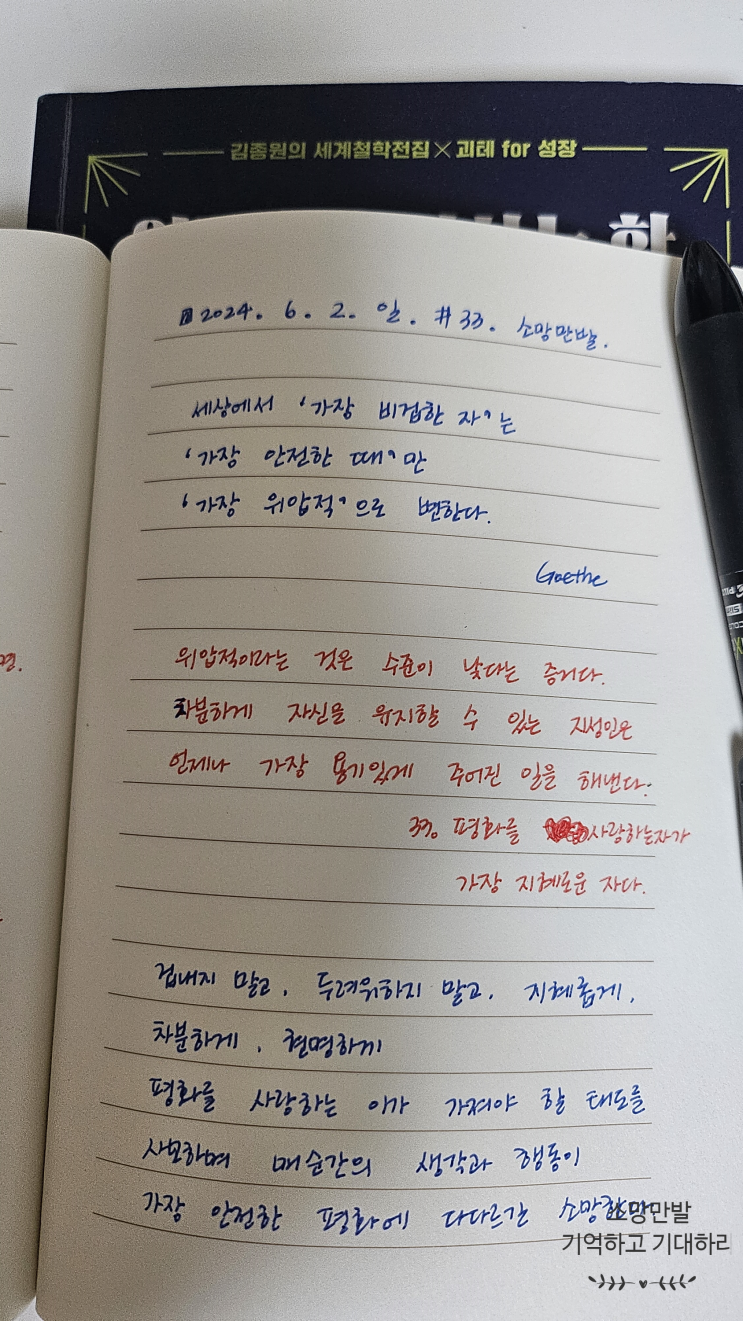 김종원의 세계철학전집 × 괴테 for 성장
2024. 6. 2. 일. #33. 소망만발.
세상에서 '가장 비겁한 자'는
'가장 안전한 때'만
'가장 위압적'으로 변한다.
Goethe
위압적이라는 것은 수준이 낮다는 증거다.
차분하게 자신을 유지할 수 있는 지성인은
언제나 가장 용기있게 주어진 일을 해낸다.
33. 평화를 사랑하는자가
가장 지혜로운 자다.
겁내지 말고, 두려워하지 말고, 지혜롭게,
차분하게, 현명하게
평화를 사랑하는 이가 가져야 할 태도를
사모하며 매순간의 생각과 행동이
가장 안전한 평화에 다다르길 소망한다.
소망만발
기억하고 기대하리